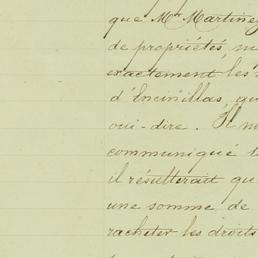 que Mr Martinez
de propriétés, m
exactement les
d'Encinillas, qu
ouï-dire. Il n
communiqué
il résulterait qu
une somme de
racheter les droits